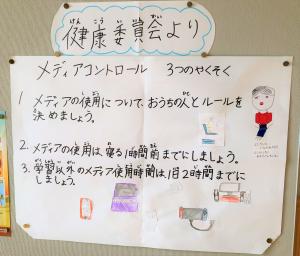 健康委員会より
けんこう いいんかい
メディアコントロール 3つのやくそく
1 メディアの使用について、おうちの人とルールを
決めましょう。
2. メディアの使用は寝る1時間前までにしましょう。
3. 学習以外のメディア使用時間は1日2時間までに
しましょう。